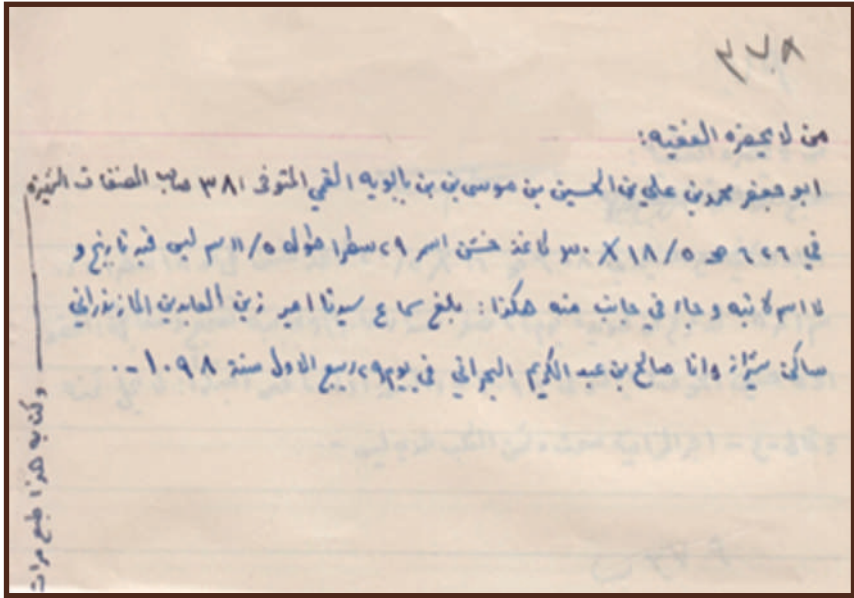 ٣٧٨
من لا يحضره الفقيه:
ابو جعفر محمد بن علي بن الحسين بن موسى بن بن بابويه القمي المتوفى ٣٨١ صاحب المصنفات
في ٦٢٦ ص ١٨/٥ X ٣٠ كاغذ خشن اسمر ٢٩ سطرا طوله ١١/٥ سم ليس فيه تاريخ و
لا اسم كاتبه و جاء في جانب منه هكذا: بلغ سماع سيدنا امير زين العابدين المازندراني
ساكن شيراز وانا صالح بن عبد الكريم البحراني في يوم ٢٩ ربيع الاول سنة ١٠٩٨ -.
وكتابه هذا طبع مرات